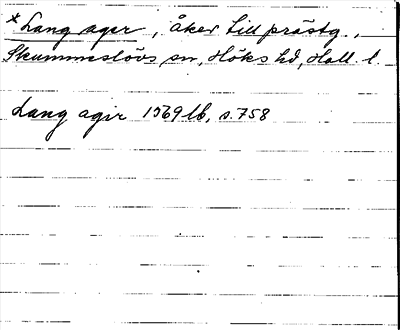 *Lang ager, åker till prästg.,
Skummeslövs sn, Höks hd, Hall. l.
Lang agir 1569 lb, s. 758